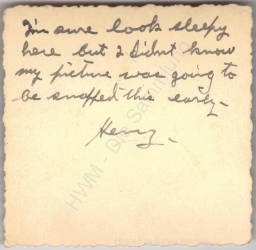 I'm sure look sleepy
here but I didn't know
my picture was going to
be snapped this early-
Henry-
HWM -